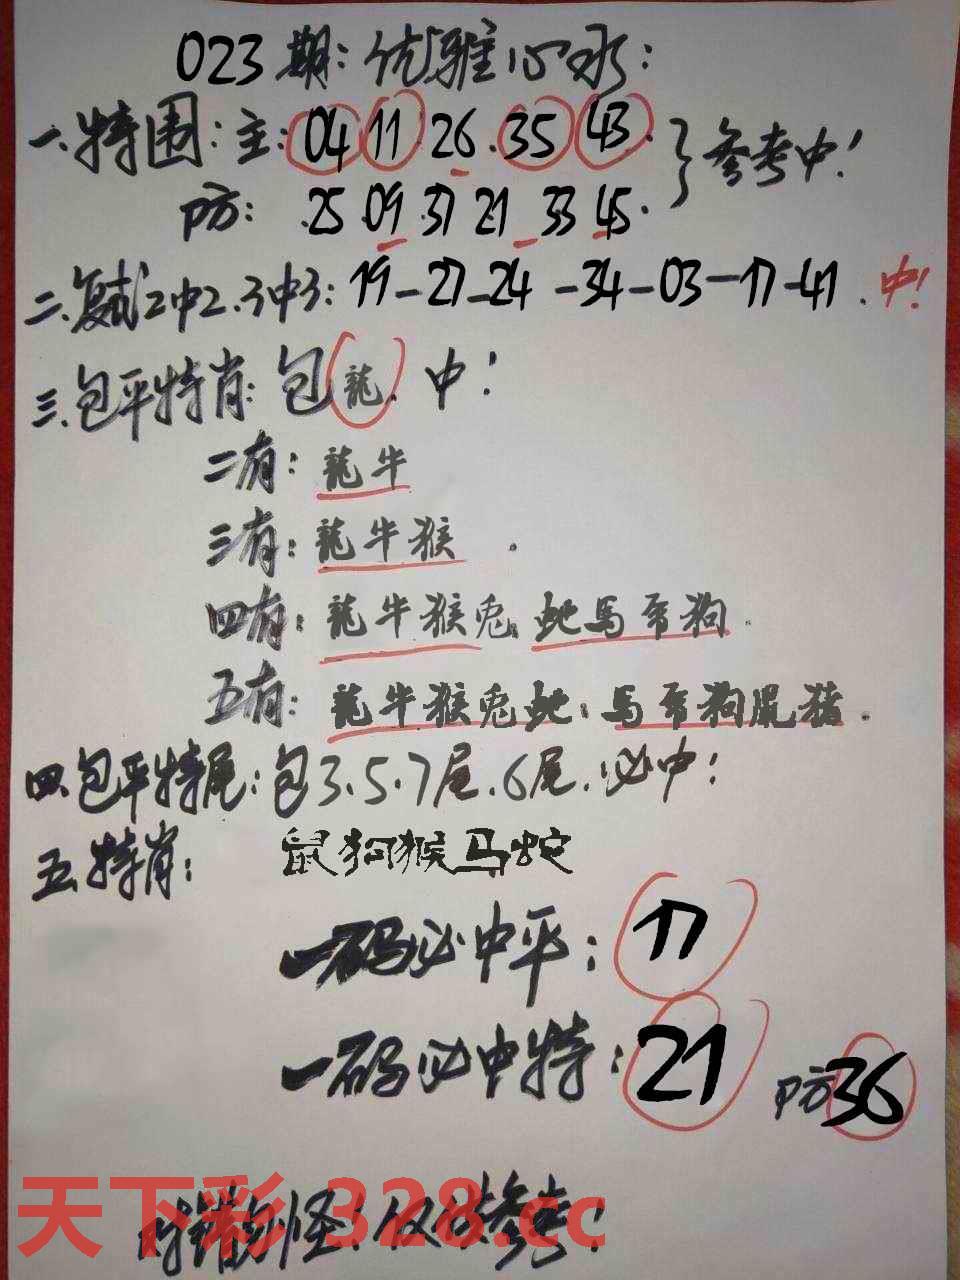 023期:优雅心水:
一.特围:主:04 11 26.35 43.}参考中!
防: .25.09.37 21.33 45.
二.复式2中2.3中3:19-27-24-34-03-17-41.中!
三.包平特肖:包龍.中!
二有:龍牛
三有:龍牛猴.
四有:龍牛猴兎.蛇馬帝狗.
五有:龍牛猴兎蛇.馬帝狗鼠猪.
四.包平特尾:包3.5.7尾.6尾.必中!
五.特肖: 鼠狗猴马蛇
一码必中平:17
一码必中特:21 防36
对错勿怪!仅供参考!
天下彩 328.cc